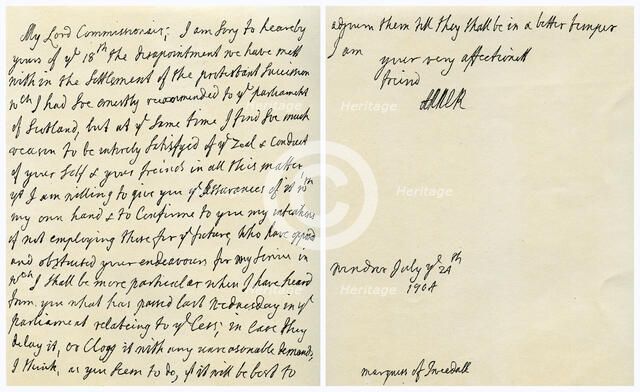 My Lord Commissioner; I am sory to heareby
yours of yᵉ 18ᵗʰ the disapointment we have mett
with in the Settlement of the protestant Succession
wᶜʰ I had Soe ernestly recomended to yᵉ parliament
of Scotland, but at yᵉ Same time I find soe much
reason to be intirely Satisfyed of yᵉ Zeal & Conduct
of your Self & your freinds in all this matter
yᵗ I am willing to give you yᵉ Assurances of it wᵗʰ
my own hand & to Confirme to you my intentions
of not employing those for yᵉ future, who have oposed
and obstructed your endeavours for my Service in
wᶜʰ I shall be more particular when I have heard
from you what has passed last Wednesday in yᵉ
Parliament relateing to yᵉ Cess; in case they
delay it, or Clogg it with any unreasonable demands,
I think, as you seem to do, yᵗ it will be best to
adjurn them till they shall be in a better temper
I am
your very affectionett
freind
ANNE R
windsor July yᵉ 24ᵗʰ
1704
marquis of Tweedall
Heritage